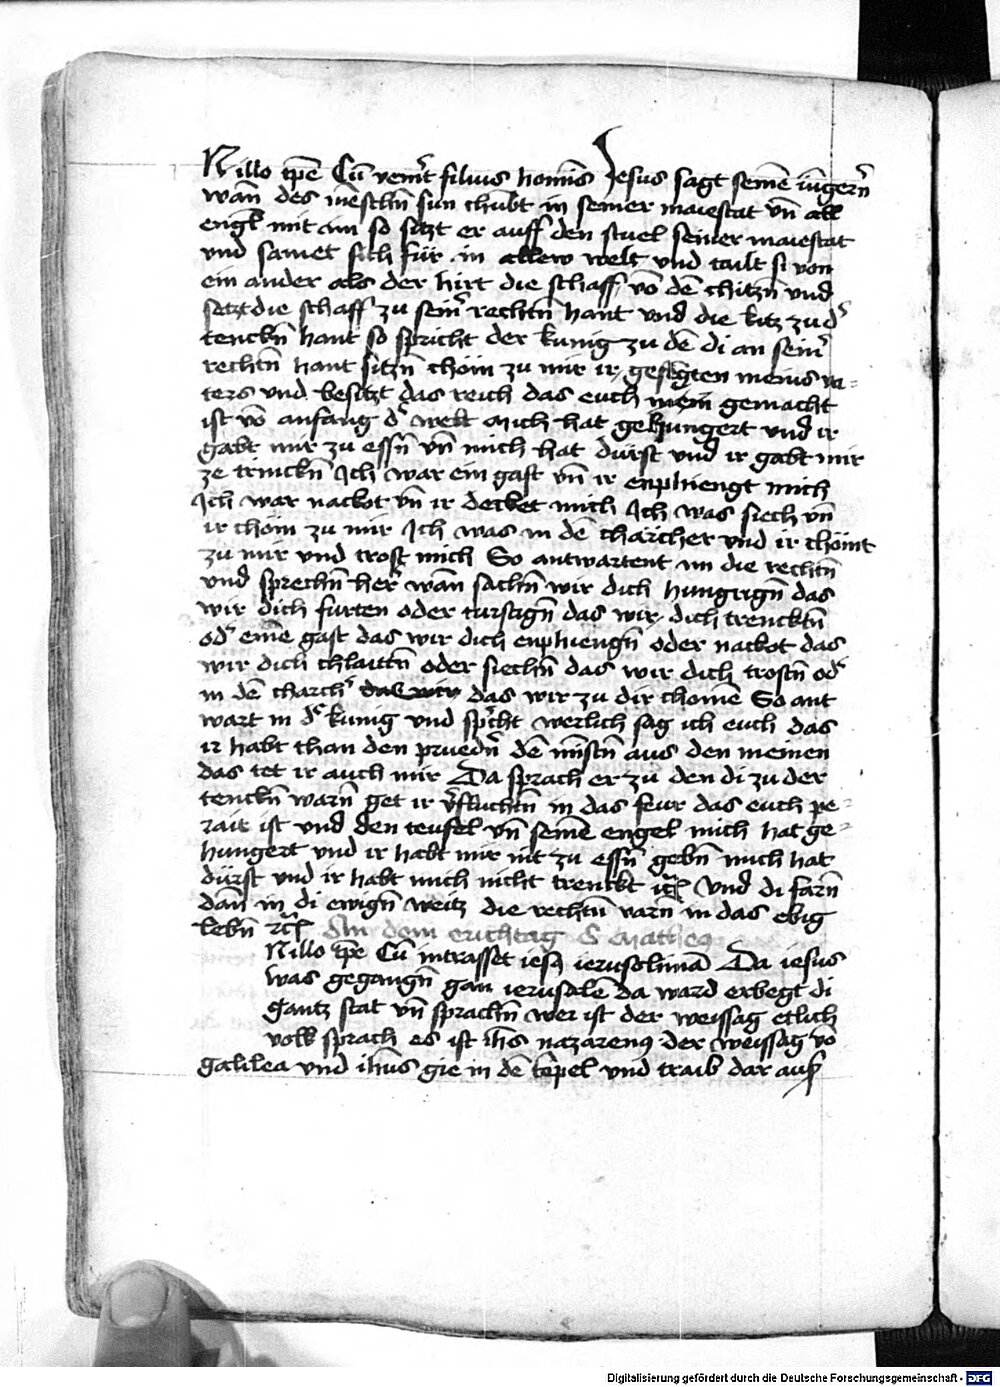 N illo tp̄e Cū ven̄it filius hominis Jesus sagt seinē iūgern̄
wan̄ des menschn̄ sun chūbt in seiner maiestat vn̄ all
engl̄ mit im so siczt er auff den stuel seiner maiestat
vnd samet sich für in allew welt vnd tailt si von
ein ander als der hirt die schaff vō dē chitzn̄ vnd
setzt die schaff zu sein̄ rechtn̄ hant vnd die kitz zu d̓
tenckn̄ hant so spricht der kunig zu dē di an sein̄
rechtn̄ hant sitzn̄ chōm zu mir ir gesegten meins va-
ters vnd besitzt das reich das euch gemacht
ist vō anfang d̓ welt Mich hat gehungert vnd ir
gabt mir zu essn̄ vn̄ mich hat dürst vnd ir gabt mir
ze trinckn̄ Ich war ein gast vn̄ ir enphiengt mich
Ich war nackot vn̄ ir decket mich Ich was siech vn̄
ir chōm zu mir Ich was in dē chärcher vnd ir chömt
zu mir vnd trost mich So antwartent im die rechtn̄
vnd sprechn̄ her̄ wan̄ sachn̄ wir dich hungrign̄ das
wir dich furten oder turstign̄ das wir dich trencktn̄
od̓ einē gast das wir dich enphiengn̄ oder nackot das
wir dich chlaittn̄ oder siechn̄ das wir dich trostn̄ od̓
in dē charch̓ das wir das wir zu dir chomē So ant
wart in d̓ kunig vnd sp̄cht werlich sag ich euch das
ir habt than den pruedn̄ dē mistn̄ aus den meinen
das tet ir auch mir Da sprach er zu den di zu der
tenckn̄ warn̄ get ir v̓fluchtn̄ in das feur das euch pe-
rait ist vnd den teufel vn̄ seinē engel mich hat ge-
hungert vnd ir habt mir nit zu essn̄ gebn̄ mich hat
dürst vnd ir habt mich nicht trenckt Vnd di farn̄
dan̄ in di ewign̄ weitz die rechtn̄ varn̄ in das ebig
lebn̄ An dem erichtag S Matheꝯ
N illo tp̄e Cū intrasset iesꝯ ierusolimā Da iesus
was gegangn̄ gan ierusalē da ward erbegt di
gantz stat vn̄ sprachn̄ wer ist der weissag etlich
volk sprach es ist ihs nazarenꝯ der weissag vō
galilea vnd ih̄us gie in dē tēpel vnd traib dar auß
Digitalisierung gefördert durch die Deutsche Forschungsgemeinschaft - DFG